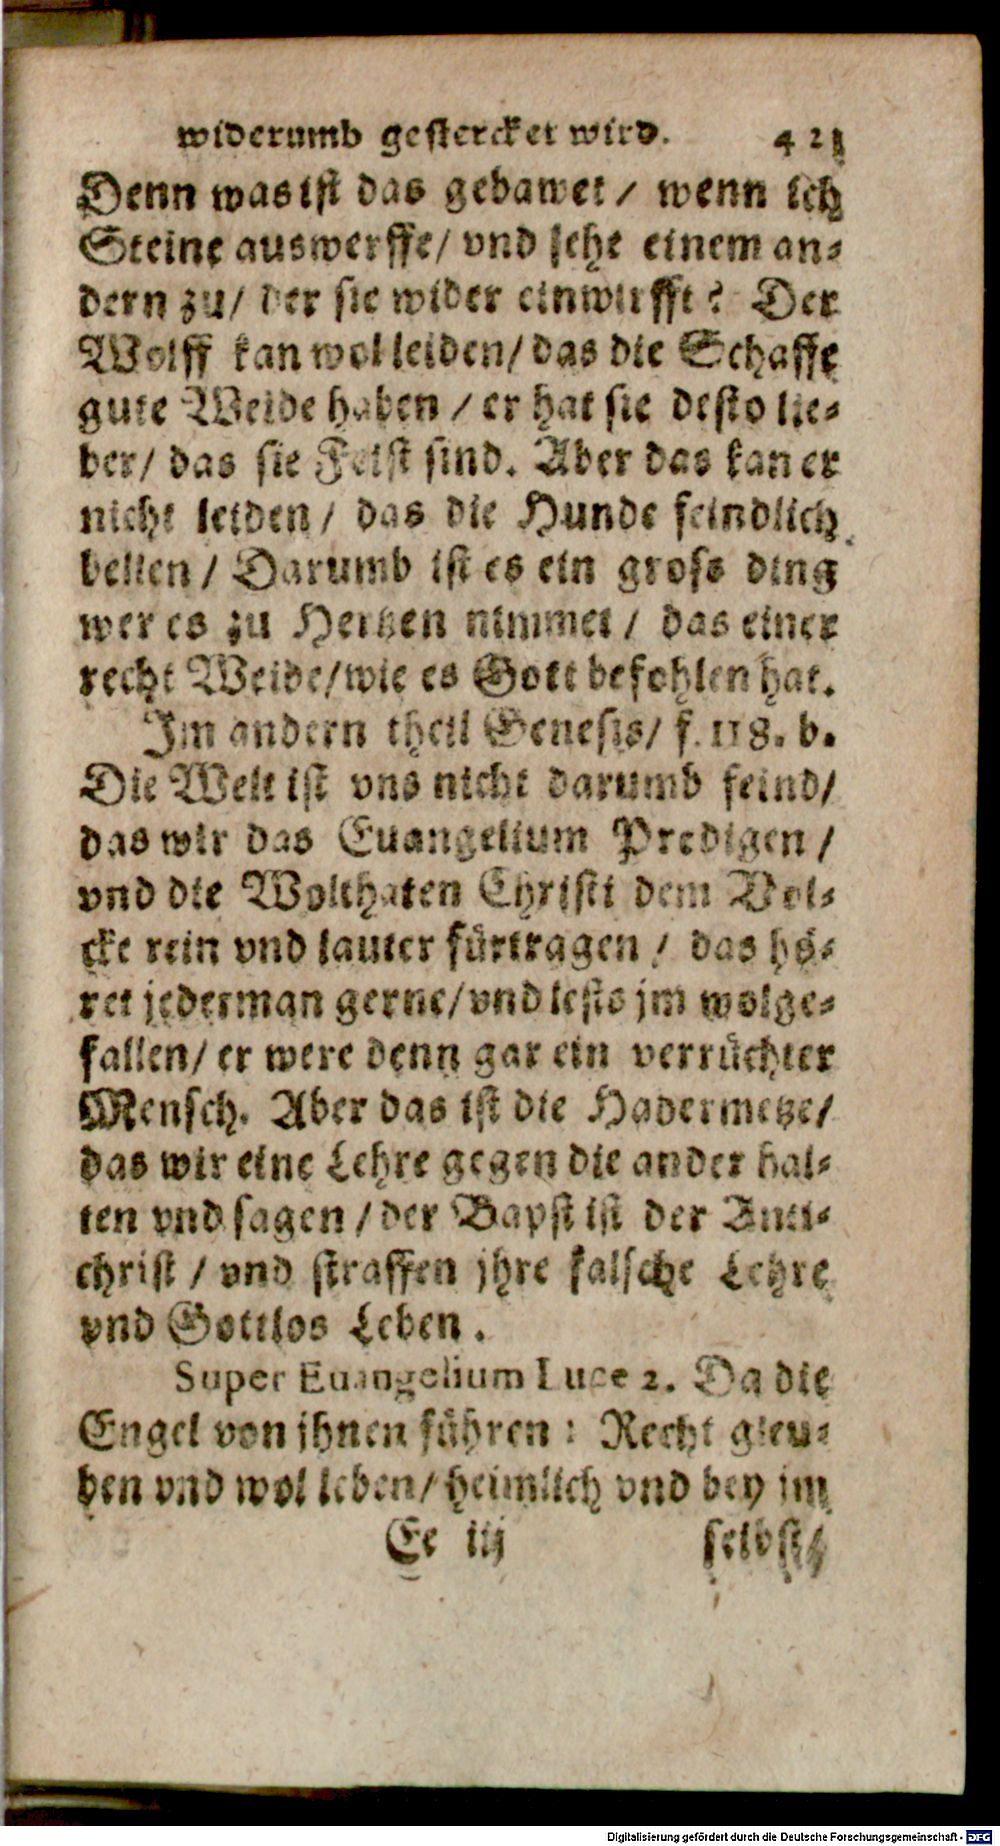 widerumb gestercket wird. 421
Denn was ist das gebawet / wenn ich
Steine auswerffe / vnd sehe einem an-
dern zu / der sie wider einwirfft? Der
Wolff kan wol leiden / das die Schaffe
gute Weide haben / er hat sie desto lie-
ber / das sie Feist sind. Aber das kan er
nicht leiden / das die Hunde feindlich
bellen / Darumb ist es ein gross ding
wer es zu Hertzen nimmet / das einer
recht Weide / wie es Gott befohlen hat.
Im andern theil Genesis / f. 118. b.
Die Welt ist vns nicht darumb feind /
das wir das Euangelium Predigen /
vnd die Wolthaten Christi dem Vol-
cke rein vnd lauter fürtragen / das hö-
ret jederman gerne / vnd lests jm wolge-
fallen / er were denn gar ein verrüchter
Mensch. Aber das ist die Hadermetze /
das wir eine Lehre gegen die ander hal-
ten vnd sagen / der Bapst ist der Anti-
christ / vnd straffen jhre falsche Lehre
vnd Gottlos Leben.
Super Euangelium Luce 2. Da die
Engel von jhnen führen: Recht gleu-
ben vnd wol leben / heimlich vnd bey im
Ee iij selbst /
Digitalisierung gefördert durch die Deutsche Forschungsgemeinschaft - DFG